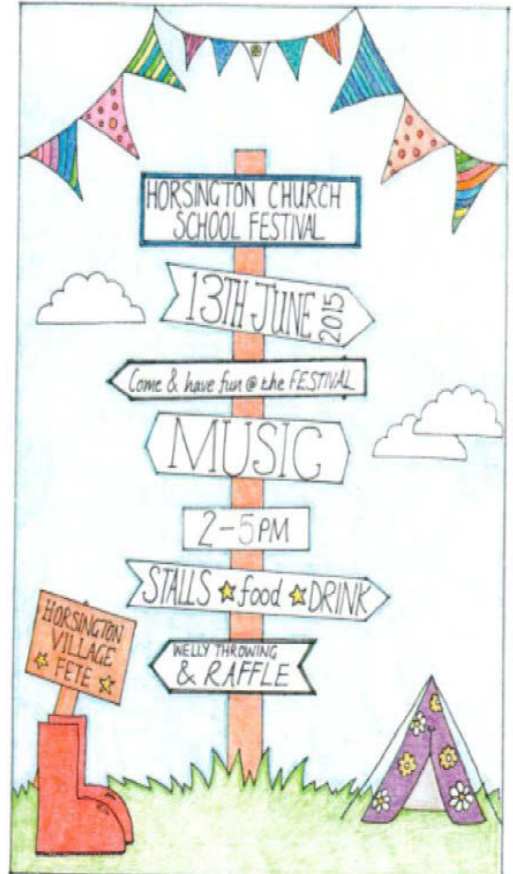 HORSINGTON CHURCH
SCHOOL FESTIVAL
13TH JUNE 2015
Come & have fun @ the FESTIVAL
MUSIC
2-5PM
STALLS ★ food ★ DRINK
WELLY THROWING
& RAFFLE
HORSINGTON
VILLAGE
FETE